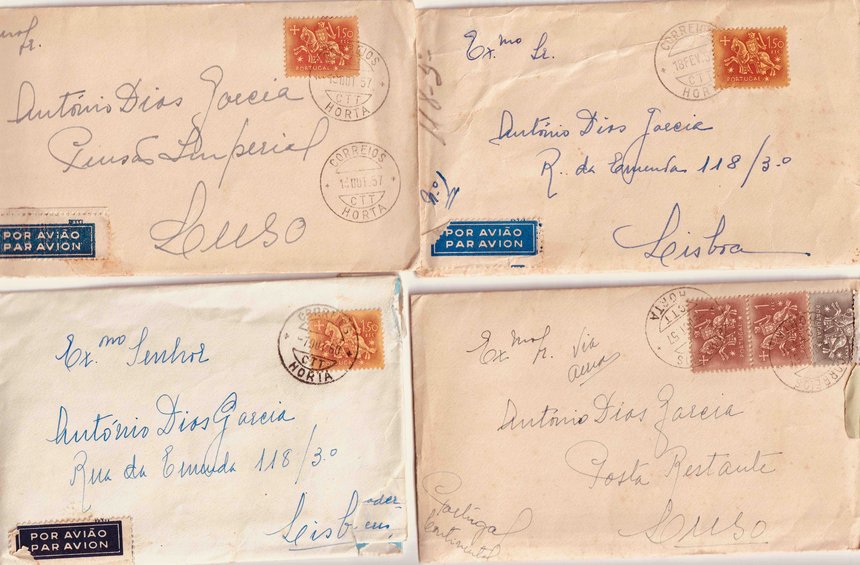 Sr.
António Dias Garcia
Pensão Imperial
Luso
1.50
PORTUGAL
CORREIOS
CTT
HORTA
CORREIOS
CTT
HORTA
POR AVIÃO
PAR AVION
Ex.mo Sr.
António Dias Garcia
R. da Emenda 118/3.º
Lisboa
1.50
PORTUGAL
CORREIOS
18 FEV. 57
CTT
HORTA
POR AVIÃO
PAR AVION
Ex.mo Senhor
António Dias Garcia
Rua da Emenda 118/3.º
1.50
CORREIOS
CTT
HORTA
POR AVIÃO
PAR AVION
Ex.mo Sr.
Via
aerea
António Dias Garcia
Posta Restante
Luso
Portugal
Continental
HORTA
CORREIOS